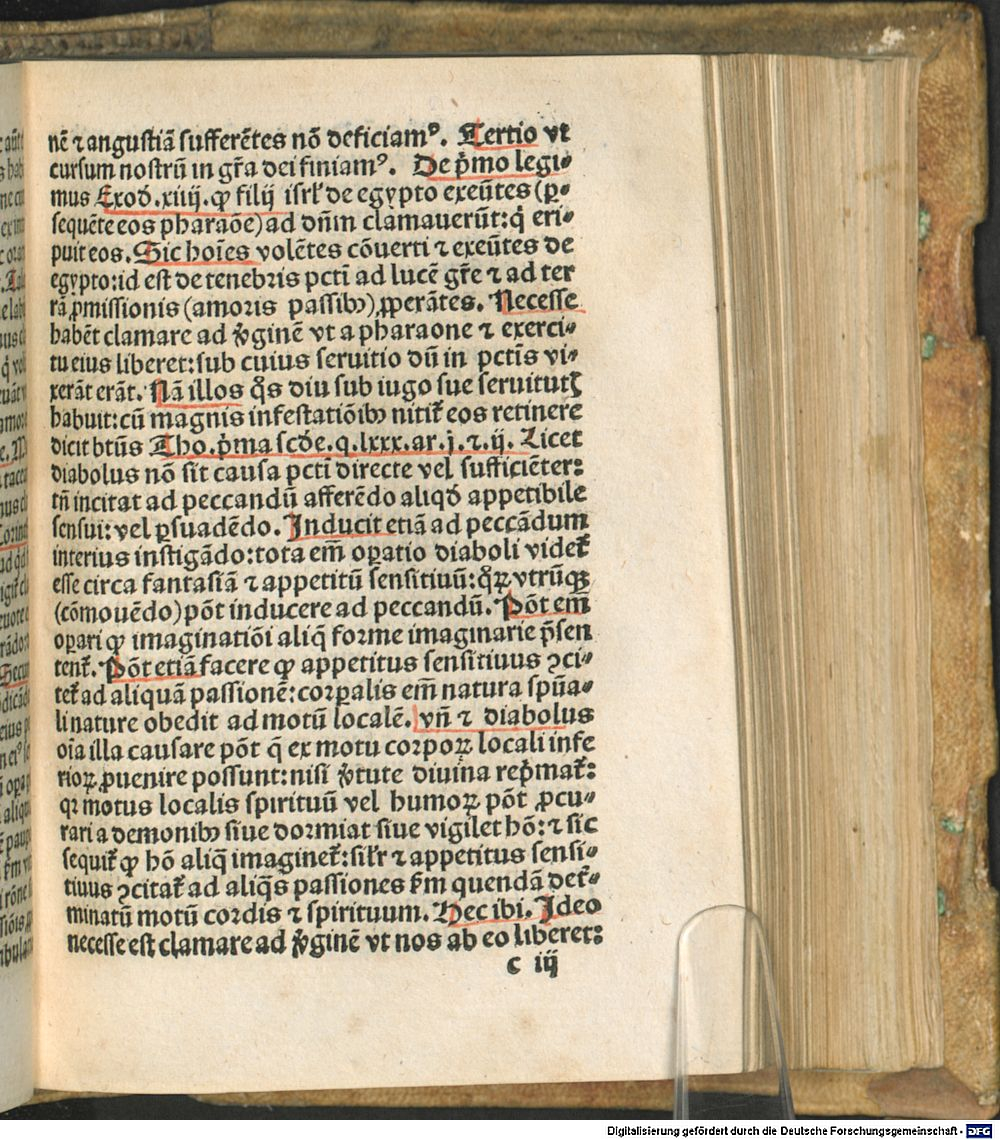 nē ⁊ angustiā sufferētes nō deficiamꝰ. Tertio vt
cursum nostrū in gr̄a dei finiamꝰ. De pͥmo legi⸗
mus Exoď.xiiij. ꝙ filij isrl' de egypto exeūtes (ꝑ⸗
sequēte eos pharaōe) ad dn̄m clamauerūt: qͥ eri⸗
puit eos. Sic hoīes volētes cōuerti ⁊ exeūtes de
egypto: id est de tenebris pctī ad lucē gr̄e ⁊ ad ter
rā ꝓmissionis (amoris passibꝰ) ꝓperātes. Necesse
habēt clamare ad v̓ginē vt a pharaone ⁊ exerci⸗
tu eius liberet: sub cuius seruitio dū in pctīs vi⸗
xerāt erāt. Nā illos qͦs diu sub iugo sue seruitutꝭ
habuit: cū magnis infestatiōibꝰ nitit᷑ eos retinere
dicit btūs Tho. pͥma scďe.q.lxxx.ar.j.⁊.ij. Licet
diabolus nō sit causa pctī directe vel sufficiēter:
tn̄ incitat ad peccandū afferēdo aliqď appetibile
sensui: vel ꝑsuadēdo. Inducit etiā ad peccādum
interius instigādo: tota em̄ oꝑatio diaboli videt᷑
esse circa fantasiā ⁊ appetitū sensitiuū: qͦꝝ vtrūqꝫ
(cōmouēdo) pōt inducere ad peccandū. Pōt em̄
oꝑari ꝙ imaginatiōi aliq̄ forme imaginarie p̄sen
tent᷑. Pōt etiā facere ꝙ appetitus sensitiuus ꝯci⸗
tet᷑ ad aliquā passionē: corꝑalis em̄ natura spūa⸗
li nature obedit ad motū localē. vn̄ ⁊ diabolus
oīa illa causare pōt q̄ ex motu corpoꝝ locali infe
rioꝝ ꝓuenire possunt: nisi v̓tute diuina repͥmat᷑:
qꝛ motus localis spirituū vel humoꝝ pōt ꝓcu⸗
rari a demonibꝰ siue dormiat siue vigilet hō: ⁊ sic
sequit᷑ ꝙ hō aliq̄ imaginet᷑: sil'r ⁊ appetitus sensi⸗
tiuus ꝯcitat᷑ ad aliq̄s passiones ẜm quendā det᷑⸗
minatū motū cordis ⁊ spirituum. Hec ibi. Ideo
necesse est clamare ad v̓ginē vt nos ab eo liberet:
c iij
Digitalisierung gefördert durch die Deutsche Forschungsgemeinschaft - DFG